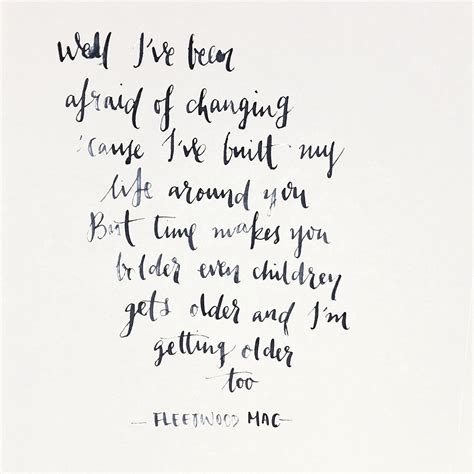 Well I've been
afraid of changing
'cause I've built my
life around you
But time makes you
bolder even children
gets older and I'm
getting older
too
— FLEETWOOD MAC —